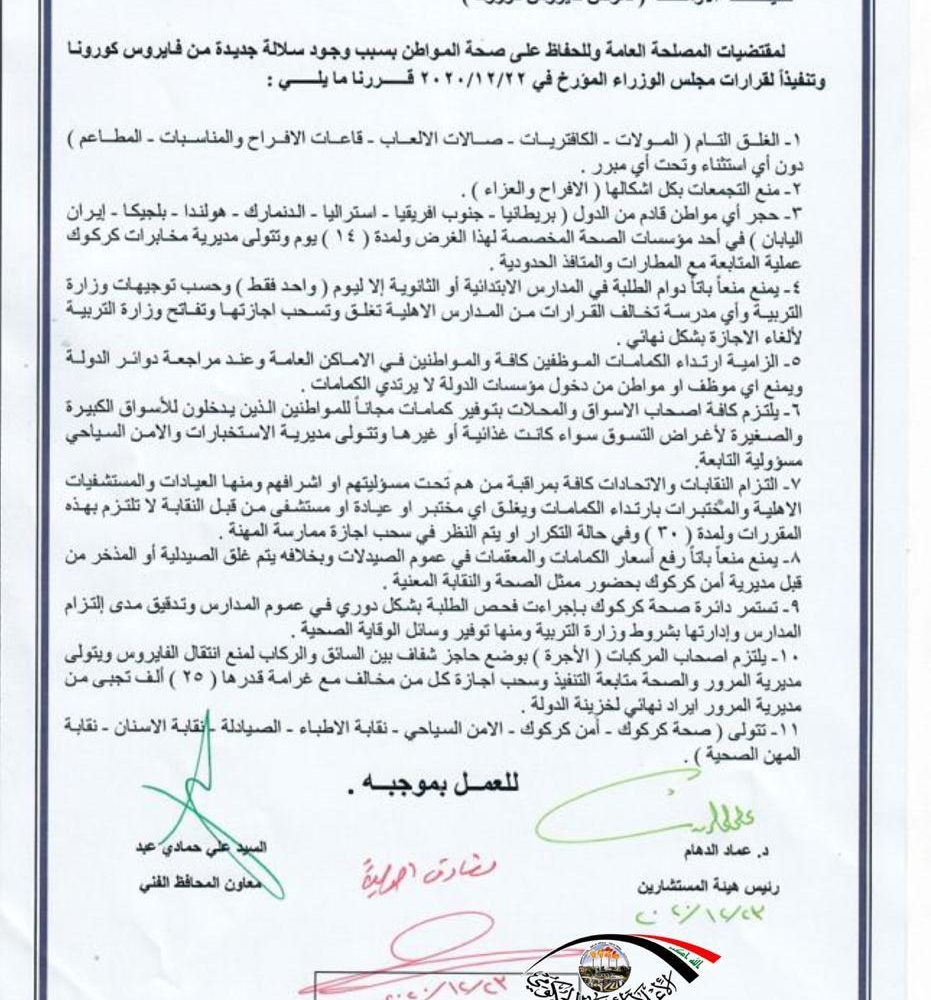 لمقتضيات المصلحة العامة وللحفاظ على صحة المواطن بسبب وجود سلالة جديدة من فايروس كورونا
وتنفيذاً لقرارات مجلس الوزراء المؤرخ في ٢٠٢٠/١٢/٢٢ قــــررنا ما يلـــــي :
١- الغلـق التـام ( المـولات - الكافتريـات - صـالات الالعـاب - قاعـات الافـراح والمناسـبات - المطـاعم )
دون أي استثناء وتحت أي مبرر .
٢- منع التجمعات بكل اشكالها ( الافراح والعزاء ) .
٣- حجر أي مواطن قادم من الدول ( بريطانيا - جنوب افريقيا - استراليا - الدنمارك - هولندا - بلجيكا - إيران
اليابان ) في أحد مؤسسات الصحة المخصصة لهذا الغرض ولمدة ( ١٤ ) يوم وتتولى مديرية مخابرات كركوك
عملية المتابعة مع المطارات والمنافذ الحدودية .
٤- يمنع منعاً باتاً دوام الطلبة في المدارس الابتدائية أو الثانوية إلا ليوم ( واحد فقط ) وحسب توجيهات وزارة
التربية وأي مدرسة تخالف القرارات من المدارس الاهلية تغلق وتسحب اجازتها وتفاتح وزارة التربية
لألغاء الاجازة بشكل نهائي .
٥- الزامية ارتداء الكمامات الموظفين كافة والمواطنين في الاماكن العامة وعند مراجعة دوائر الدولة
ويمنع اي موظف او مواطن من دخول مؤسسات الدولة لا يرتدي الكمامات .
٦- يلتزم كافة اصحاب الاسواق والمحلات بتوفير كمامات مجاناً للمواطنين الذين يدخلون للأسواق الكبيرة
والصغيرة لأغراض التسوق سواء كانت غذائية أو غيرها وتتولى مديرية الاستخبارات والامن السياحي
مسؤولية التابعة.
٧- التزام النقابات والاتحادات كافة بمراقبة من هم تحت مسؤليتهم او اشرافهم ومنها العيادات والمستشفيات
الاهلية والمختبرات بارتداء الكمامات ويغلق اي مختبر او عيادة او مستشفى من قبل النقابة لا تلتزم بهذه
المقررات ولمدة ( ٣٠ ) وفي حالة التكرار او يتم النظر في سحب اجازة ممارسة المهنة .
٨- يمنع منعاً باتاً رفع أسعار الكمامات والمعقمات في عموم الصيدلات وبخلافه يتم غلق الصيدلية أو المذخر من
قبل مديرية أمن كركوك بحضور ممثل الصحة والنقابة المعنية .
٩- تستمر دائرة صحة كركوك بإجراءت فحص الطلبة بشكل دوري في عموم المدارس وتدقيق مدى إلتزام
المدارس وإدارتها بشروط وزارة التربية ومنها توفير وسائل الوقاية الصحية .
١٠- يلتزم اصحاب المركبات ( الأجرة ) بوضع حاجز شفاف بين السائق والركاب لمنع انتقال الفايروس ويتولى
مديرية المرور والصحة متابعة التنفيذ وسحب اجازة كل من مخالف مع غرامة قدرها ( ٢٥ ) ألف تجبى من
مديرية المرور ايراد نهائي لخزينة الدولة .
١١- تتولى ( صحة كركوك - أمن كركوك - الامن السياحي - نقابة الاطباء - الصيادلة - نقابة الاسنان - نقابة
المهن الصحية ) .
للعمــل بموجبــه .
د. عماد الدهام
رئيس هيئة المستشارين
٢٠٢٠/١٢/٢٣
السيد علي حمادي عبد
معاون المحافظ الفني
مصادق اصولياً
٢٠٢٠/١٢/٢٣
الله اكبر